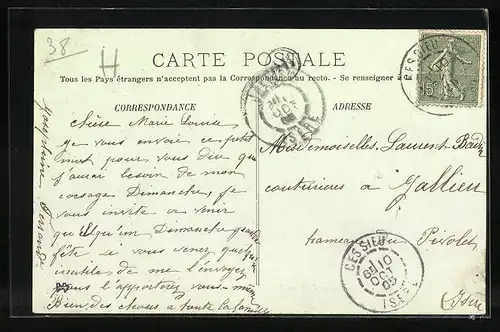 38
H
CARTE POSTALE
Tous les Pays étrangers n'acceptent pas la Correspondance au recto. - Se renseigner
CORRESPONDANCE
ADRESSE
Chère Marie Louise
Je vous envoie ce petit
mot pour vous dire que
j'aurai besoin de mon
corsage Dimanche, je
vous invite a venir
Dimanche
fête si vous venez
inutile de me l'envoyer
vous l'apporterez vous-même
Bien des choses à toute la famille
Joséphine
Mesdemoiselles Laurent
couturières a Jallieu
hameau du Pivolet
(Isère
CESSIEU
15c
ISÈRE
CESSIEU
10
OCT
05
ISÈRE